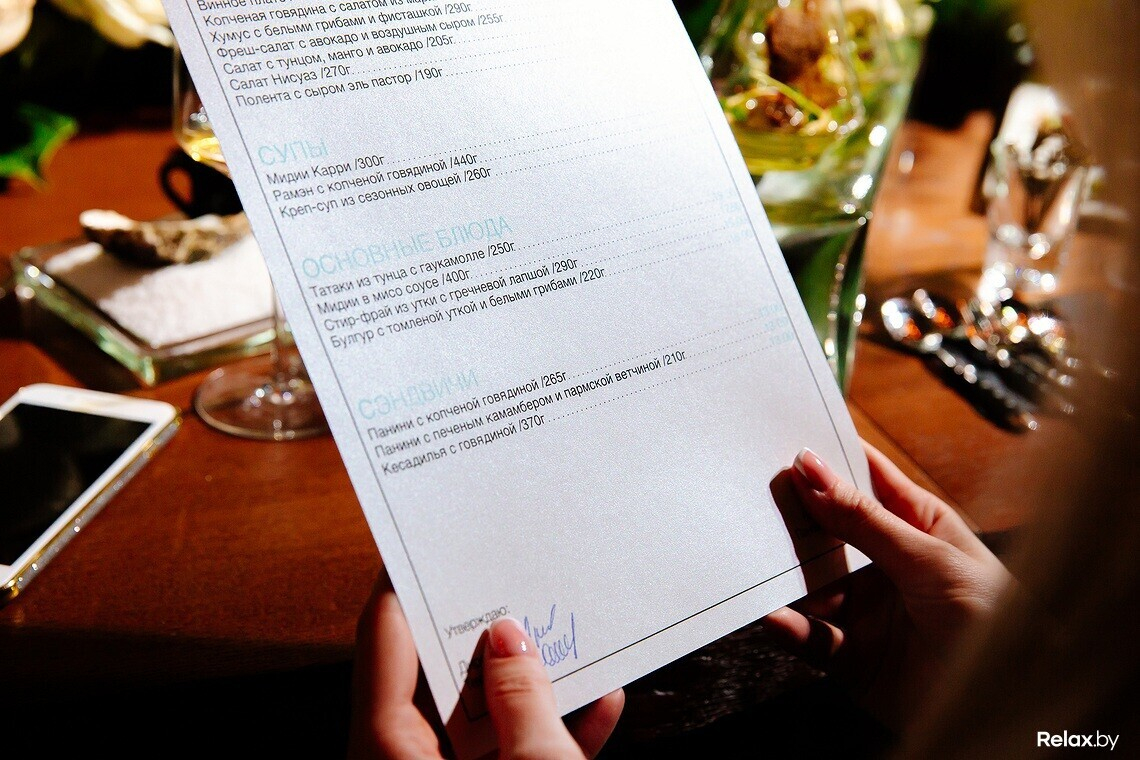 Винное плато
Копченая говядина с салатом из
Хумус с белыми грибами и фисташкой /290г
Фреш-салат с авокадо и воздушным сыром /255г
Салат с тунцом, манго и авокадо /205г
Салат Нисуаз /270г
Полента с сыром эль пастор /190г
СУПЫ
Мидии Карри /300г
Рамэн с копченой говядиной /440г
Креп-суп из сезонных овощей /260г
ОСНОВНЫЕ БЛЮДА
Татаки из тунца с гаукамолле /250г
Мидии в мисо соусе /400г
Стир-фрай из утки с гречневой лапшой /290г
Булгур с томленой уткой и белыми грибами /220г
СЭНДВИЧИ
Панини с копченой говядиной /265г
Панини с печеным камамбером и пармской ветчиной /210г
Кесадилья с говядиной /370г
Утверждаю:
Relax.by